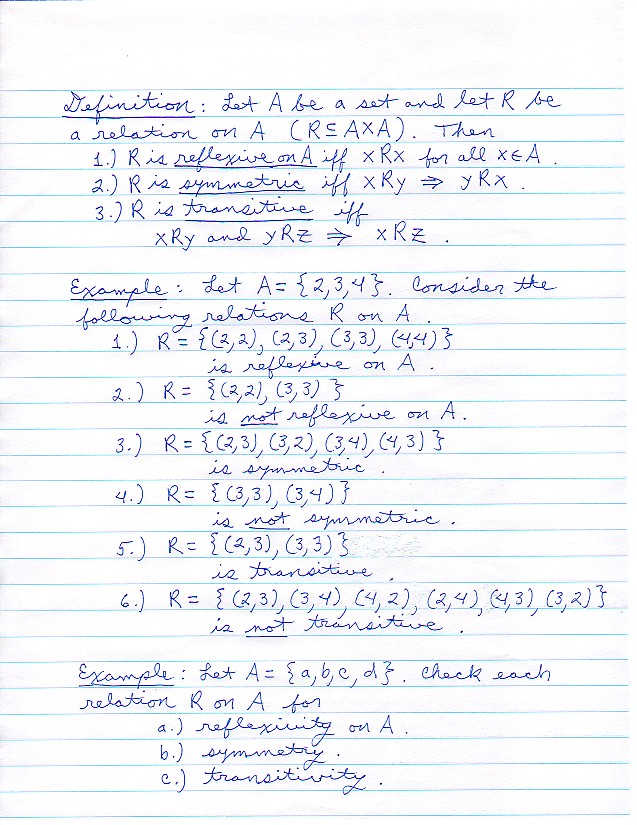 Definition: Let A be a set and let R be
a relation on A (R⊆A×A). Then
1.) R is reflexive on A iff xRx for all x∈A.
2.) R is symmetric iff xRy ⇒ yRx.
3.) R is transitive iff
xRy and yRz ⇒ xRz.
Example: Let A = {2,3,4}. Consider the
following relations R on A.
1.) R = {(2,2), (2,3), (3,3), (4,4)}
is reflexive on A.
2.) R = {(2,2), (3,3)}
is not reflexive on A.
3.) R = {(2,3), (3,2), (3,4), (4,3)}
is symmetric.
4.) R = {(3,3), (3,4)}
is not symmetric.
5.) R = {(2,3), (3,3)}
is transitive.
6.) R = {(2,3), (3,4), (4,2), (2,4), (4,3), (3,2)}
is not transitive.
Example: Let A = {a,b,c,d}. Check each
relation R on A for
a.) reflexivity on A.
b.) symmetry.
c.) transitivity.